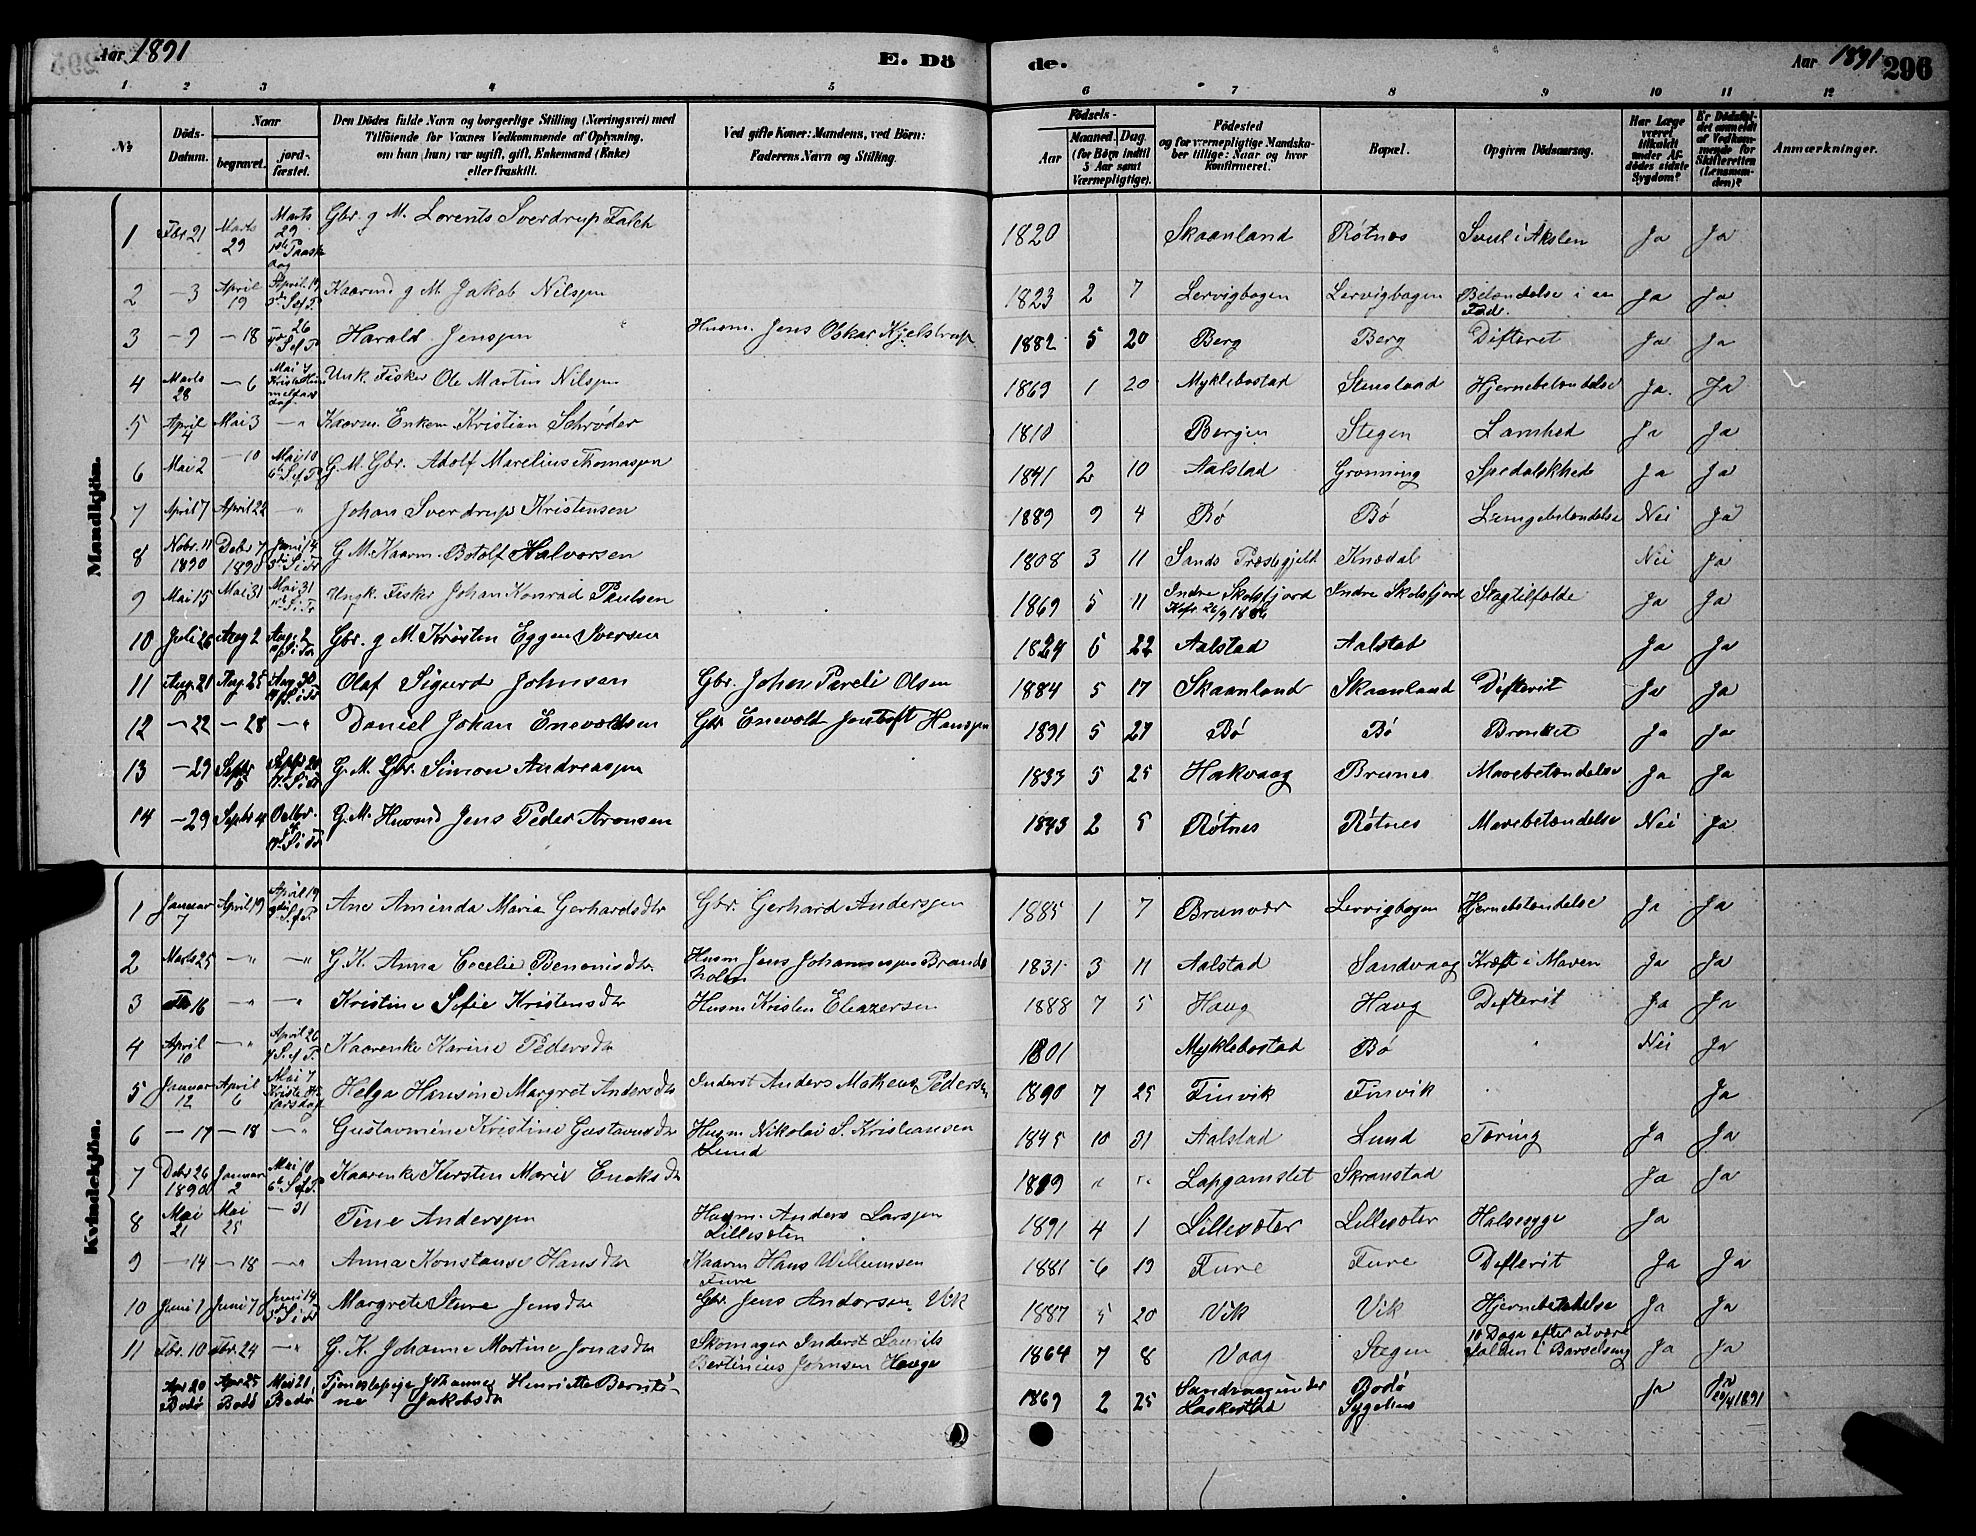 Aar 1891
E. Dö
de.
Aar 1891
296
1 2 3 4 5 6 7 8 9 10 11 12
№
Döds-Datum.
Naar
begravet.
jord-fæstet.
Den Dödes fulde Navn og borgerlige Stilling (Næringsvei) med
Tilföiende for Voxnes Vedkommende af Oplysning,
om han (hun) var ugift, gift, Enkemand (Enke)
eller fraskilt.
Ved gifte Koner: Mandens, ved Börn:
Faderens Navn og Stilling.
Födsels-
Aar
Maaned. Dag.
(for Börn indtil
5 Aar samt
Værnepligtige).
Födested
og for værnepligtige Mandska-
ber tillige: Naar og hvor
Konfirmeret.
Bopæl.
Opgiven Dödsaarsag.
Har Læge
været
tilkaldt
under Af-
dödes sidste
Sygdom?
Er Dödsfal-
det anmeldt
af Vedkom-
mende for
Skifteretten
(Lensman-
den)?
Anmærkninger.
Mandkjön.
1 Fbr 21 Marts 29 Marts 29 1ste Paaske dag Gbr. g M. Lorents Sverdrup Falch 1820 Skaanland Røtnes Saar i Akslen Ja Ja
2 — 3 April 19 April 19 Kaarmd g M. Jakob Nilsjen 1823 2 7 Lervigbogen Lervigbogen Betændelse i en Fod. Ja Ja
3 — 9 — 18 — 26 Harald Jensjen Husm. Jens Oskar Kjelstrup 1882 5 20 Berg Berg Difterit Ja Ja
4 Marts 28 — 6 Mai 7 Unk. Fisker Ole Martin Nilsjen 1869 1 20 Myklebostad Stensland Hjernebetændelse Ja. Ja
5 April 4 Mai 3 — " Kaarm. Enkem. Kristian Schrøder 1810 Bergen Stegen Lamhed Ja Ja
6 Mai 2 — 10 Mai 10 G. M. Gbr. Adolf Marelius Thomasjen 1841 2 10 Aalstad Grønning Spedalskhed Ja Ja
7 April 7 April 22 " Johan Sverdrup Kristensen 1889 9 4 Bø Bø Lungebetændelse Nei Ja
8 Nobr. 11 1890 Debr 7 1890 Juni 14 G. M. Kaarm. Botolf Halvorsen 1808 3 11 Sands Præstegjeld Knædal Nei Ja
9 Mai 15 Mai 31 Mai 31 Ungk. Fisker Johan Konrad Paulsen 1869 5 11 Indre Skolsfjord Indre Skolsfjord Slagtilfælde Ja Ja
10 Juli 26 Aug 2 Aug. 2 Gbr. g M. Kristen Eggen Iversen 1824 6 22 Aalstad Aalstad Ja Ja
11 Aug. 21 Aug. 25 Aug 30 Olaf Sigurd Johnsen Gbr. Johan Pareli Olsen 1884 5 17 Skaanland Skaanland Difterit Ja Ja
12 — 22 — 28 — " Daniel Johan Enevoldsen Gbr Enevold Jentoft Hansjen 1891 5 27 Bø Bø Bronket Ja Ja
13 — 29 Septbr Septbr 20 G. M. Gbr. Simon Andreasjen 1833 5 25 Hakvaag Brunes Mavebetændelse Ja Ja
14 — 29 Septbr 4 Octbr. G. M. Husmd Jens Peder Aronsen 1843 2 5 Røtnes Røtnes Mavebetændelse Nei Ja
Kvindekjön.
1 Januar 7 April 19 April 19 Ane Aminda Maria Gerhardsdtr Gbr. Gerhard Andersjen 1885 1 7 Brunvær Lervigbogen Hjernebetændelse Ja Ja
2 Marts 25 — " — " G. K. Anna Cecelie Benonisdtr. Husm Jens Johannesjen Brandsholm 1831 3 11 Aalstad Sandvaag Kræft i Maven Ja Ja
3 — 16 — " — " Kristine Sofie Kristensdtr Husm Kristen Eleazersen 1888 7 5 Haug Haug Difterit Ja Ja
4 April 10 — " April 26 Kaarenke Karine Pedersdtr 1801 Myklebostad Bø " Nei Ja
5 Januar 12 April 6 Mai 7 Helga Hansine Margret Andersdtr Inderst Anders Matheus Pedersen 1890 7 25 Finvik Finvik Ja
6 — 17 — 18 — " Gustavmine Kristine Gustavusdtr Husm Nikolai S. Kristiansen Lund 1845 10 31 Aalstad Lund Tæring Ja Ja
7 Debr 26 1890 Januar 2 Mai 10 Kaarenke Kirsten Marie Enoksdtr " " Skranstad Ja Ja
8 Mai 21 Mai 25 — 31 Tine Andersjen Husm. Anders Larsjen Lillesæter 1891 4 1 Lillesæter Lillesæter Halsesyge Ja
9 — 14 — 18 — " Anna Konstanse Hansdtr Kaarm Hans Willumsen Fure 1881 6 19 Fure Fure Difterit Ja Ja
10 Juni 1 Juni 7 Juni 14 Margrete Sture Jensdtr Gbr. Jens Andersen Vik 1887 5 20 Vik Vik Hjernebetændelse Ja Ja
11 Fbr. 10 Fbr. 24 — " G. K. Johanne Martine Jonasdtr Skomager Inderst Laurits Bertinius Jonsen Hauge 1864 7 8 Vaag Stegen 10 Dage efter at være falden i Barselseng Ja Ja
Apr 20 Bodø Apr 25 Bodø Mai 21 Bodø Tjenestepige Johanne Henriette Berntine Jakobsdtr 1869 2 25 Sandvaag under Laskestad Bodø Sygehus Ja Ja 22/4 1891